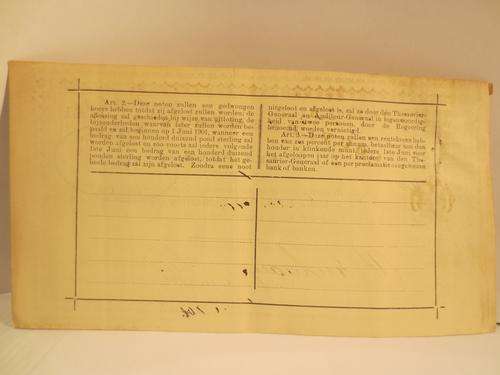 Art. 2.—Deze noten zullen een gedwongen
koers hebben totdat zij afgelost zullen worden; de
aflossing zal geschieden bij wijze van uitloting, de
bijzonderheden waarvan later zullen worden be-
paald en zal beginnen op 1 Juni 1901, wanneer een
bedrag van een honderd duizend pond sterling zal
worden afgelost en zoo voorts zal iedere volgende
1ste Juni een bedrag van een honderd duizend
ponden sterling worden afgelost, totdat het ge-
heel bedrag zal zijn afgelost. Zoodra eene noot
uitgeloot en afgelost is, zal ze door den Thesaurier-
Generaal en Auditeur-Generaal in tegenwoordig-
heid van twee personen, door de Regeering
benoemd, worden vernietigd.
Art. 3.—Deze noten zullen een rentekoers heb-
ben van zes percent per annum, betaalbaar aan den
houder in klinkende munt, iedere 1ste Juni voor
het afgeloopen jaar op het kantoor van den The-
saurier-Generaal of een per proclamatie aangegeven
bank of banken.